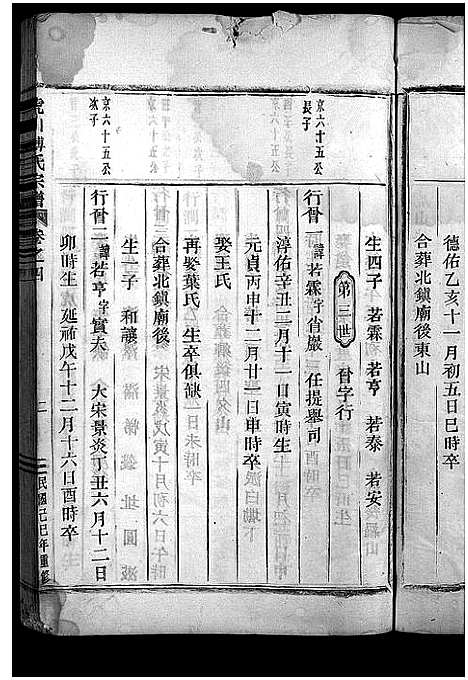 德佑乙亥十一月初五日巳時卒
合葬北鎮廟後東山
生四子 若霖 若亨 若泰 若安
第三世 晉字行
京六十五公長子
行晉一諱若霖字省巖 任提舉司
淳佑辛丑二月十一日寅時生
元貞丙申十二月廿三日申時卒
娶王氏
再娶葉氏 生卒俱缺
合葬北鎮廟後
生一子 和讓
京六十五公次子
行晉二諱若亨字實夫 大宋景炎丁丑六月十二日
卯時生 延祐戊午十二月十六日酉時卒
氏宗譜 卷之四 三 民國己巳年重修